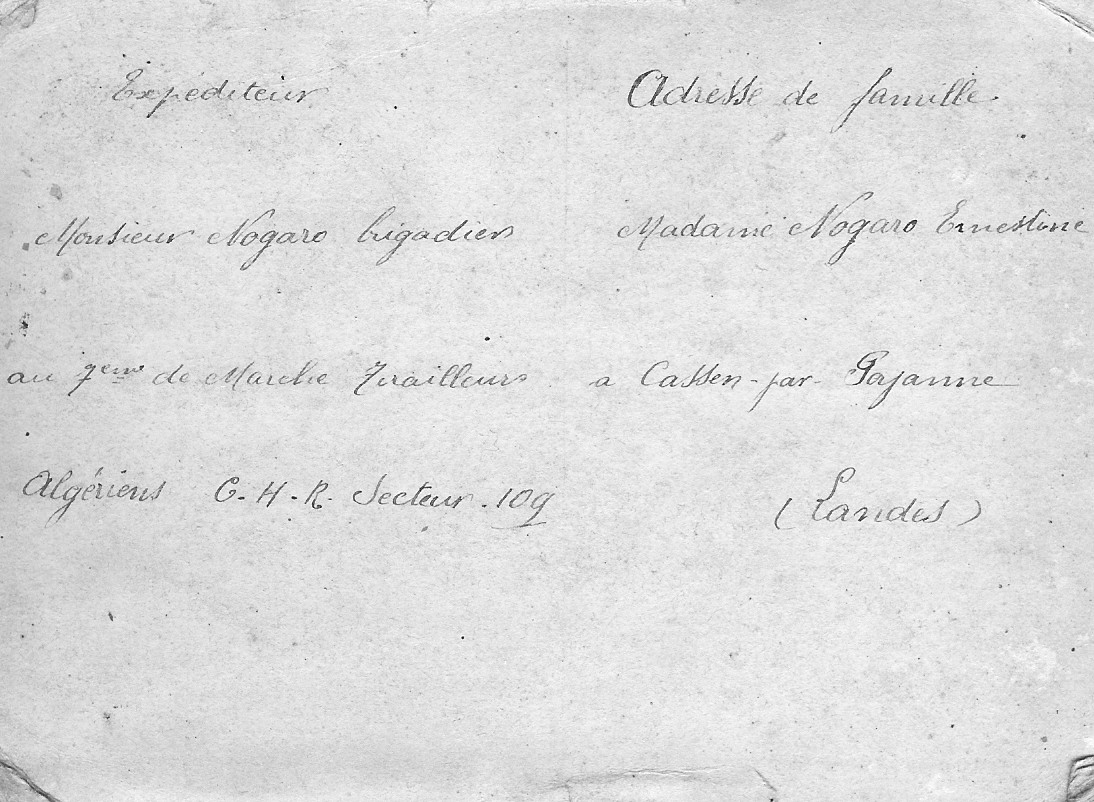 Expéditeur
Monsieur Nogaro brigadier
au 7eme de Marche Tirailleurs
Algériens C.H.R. Secteur. 109
Adresse de famille.
Madame Nogaro Ernestine
a Cassen-par-Pojanne
(Landes)